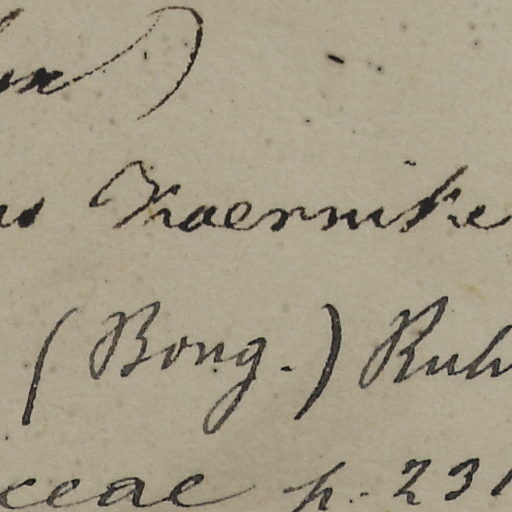 Koernike
(Bong.) Ruh
ceae p. 231